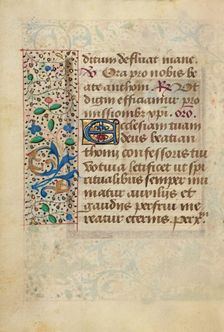 dictum defluat mane.
V Ora pro nobis be
ate anthoni. R Ut
digni efficiamur pro
missionibz xpi. oro.
Ecclesiam tuam
deus beati an
thonij confessoris tui
votiva letificet ut spi
ritualibus semper mu
niatur auxilijs et
gaudijs perfrui me
reatur eternis. per x